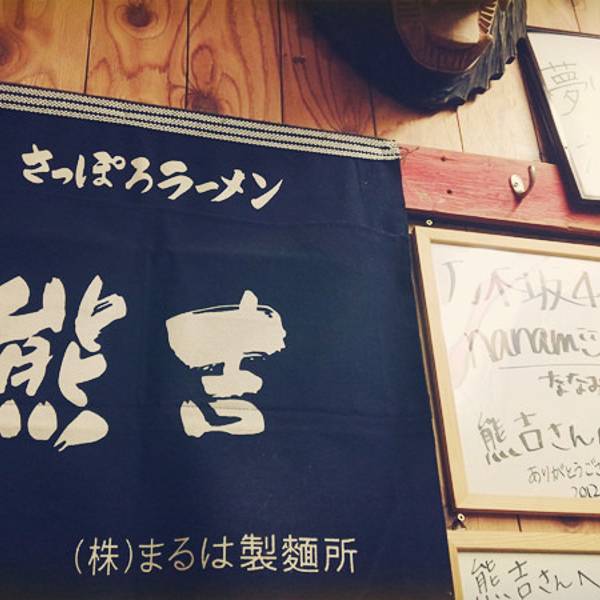 さっぽろラーメン
熊吉
(株)まるは製麵所
夢
乃木坂4
nanami
ななみ
熊吉さんへ
ありがとうござ
2012
熊吉さんへ